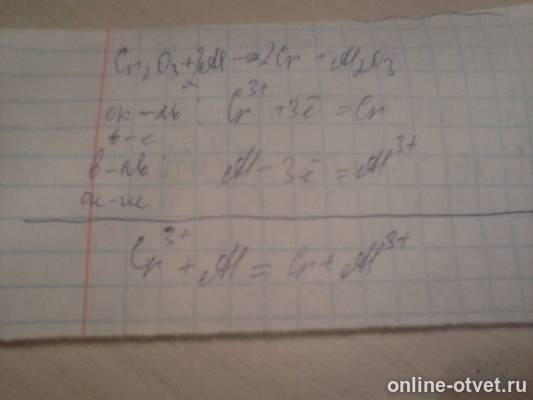 Cr₂O₃ + 2Al → 2Cr + Al₂O₃
ок-ль : Cr³⁺ + 3ē = Cr
в-е
в-ль : Al - 3ē = Al³⁺
ок-ие
Cr³⁺ + Al = Cr + Al³⁺
online-otvet.ru